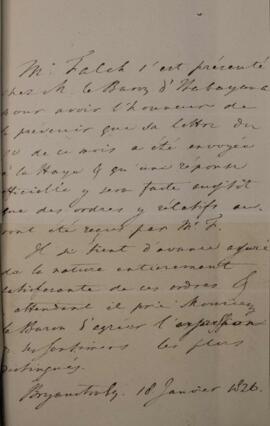 Mr. Falck s'est présenté
chez M. le Baron d'Itabayana
pour avoir l'honneur de
le prévenir que sa lettre du
10 de ce mois a été envoyée
à la Haye & qu'une réponse
officielle y sera faite aussitôt
que des ordres y relatifs au-
ront été reçus par Mr. F.
Il se tient d'avance assuré
de la nature entièrement
satisfaisante de ces ordres &
attendant il prie Monsieur
le Baron d'agréer l'expression
de ses sentimens les plus
distingués.
18 Janvier 1826.